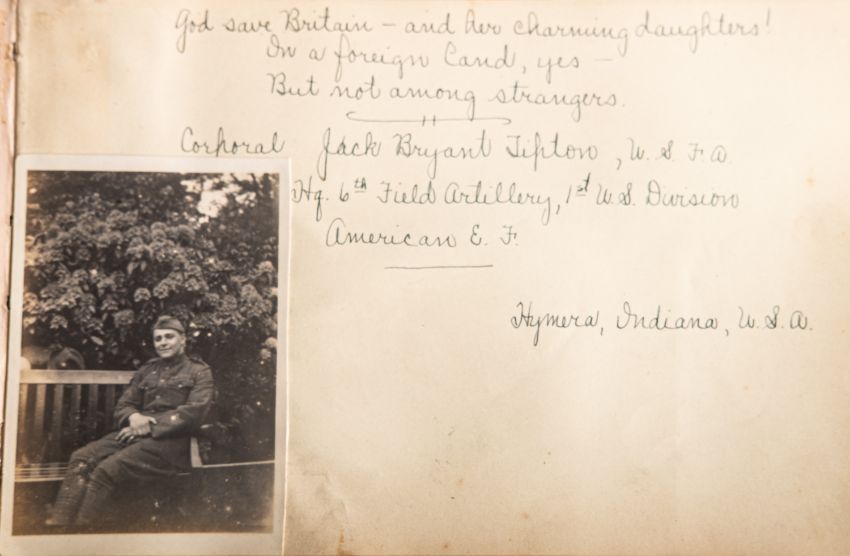 God save Britain – and her charming daughters!
In a foreign land, yes –
But not among strangers.
Corporal Jack Bryant Tipton, U. S. F. A.
Hq. 6th Field Artillery, 1st U.S. Division
American E. F.
Hymera, Indiana, U. S. A.